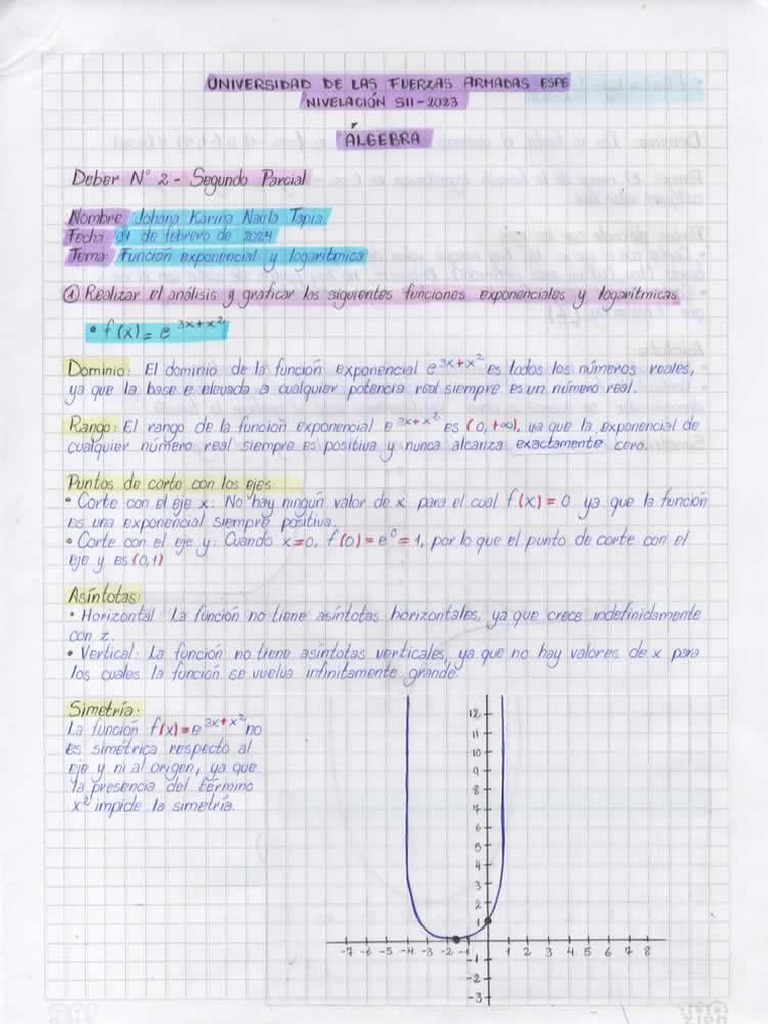 UNIVERSIDAD DE LAS FUERZAS ARMADAS ESPE
NIVELACIÓN SII-2023
ÁLGEBRA
Deber N° 2 - Segundo Parcial
Nombre: Johana Karina Naula Tapia
Fecha: 01 de febrero de 2024
Tema: Función exponencial y logarítmica
① Realizar el análisis y graficar las siguientes funciones exponenciales y logarítmicas
• f(x) = e^3x+x²
Dominio: El dominio de la función exponencial e^3x+x² es todos los números reales,
ya que la base e elevada a cualquier potencia real siempre es un número real.
Rango: El rango de la función exponencial e^3x+x² es (0,+∞), ya que la exponencial de
cualquier número real siempre es positiva y nunca alcanza exactamente cero.
Puntos de corte con los ejes
• Corte con el eje x: No hay ningún valor de x para el cual f(x) = 0 ya que la función
es una exponencial siempre positiva.
• Corte con el eje y: Cuando x=0, f(0) = e⁰ = 1, por lo que el punto de corte con el
eje y es (0,1)
Asíntotas:
• Horizontal: La función no tiene asíntotas horizontales, ya que crece indefinidamente
con x.
• Vertical: La función no tiene asíntotas verticales, ya que no hay valores de x para
los cuales la función se vuelva infinitamente grande.
Simetría:
La función f(x)=e^3x+x² no
es simétrica respecto al
eje y ni al origen, ya que
la presencia del término
x² impide la simetría.
12
11
10
9
8
7
6
5
4
3
2
1
-7 -6 -5 -4 -3 -2 -1 1 2 3 4 5 6 7 8
-1
-2
-3